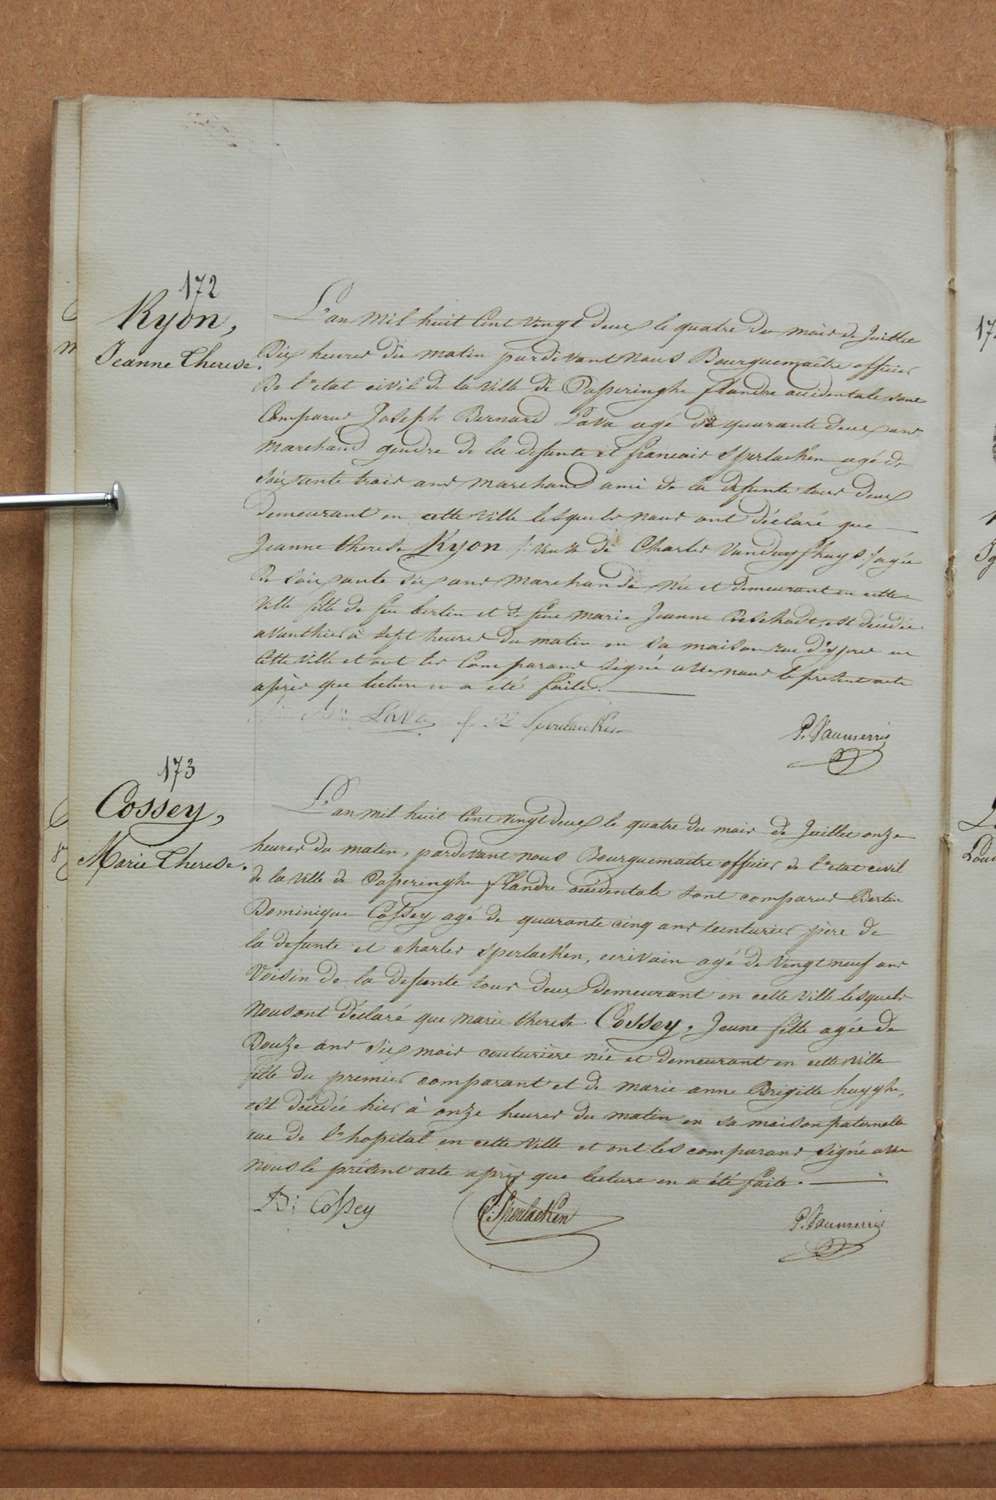 172
Ryon,
Jeanne Therese.
L'an mil huit cent vingt deux le quatre du mois de Juillet
dix heures du matin pardevant nous Bourguemaitre officier
de l'etat civil de la ville de Poperinghe flandre occidentale sont
comparus Joseph Bernard Lava agé de quarante deux ans
marchand gendre de la defunte et francois Sperlacken agé de
soixante trois ans marchand ami de la defunte tous deux
demeurant en cette ville lesquels nous ont déclaré que
Jeanne therese Ryon veuve de Charles agée
de soixante six ans marchande née et demeurant en cette
ville fille de feu bertin et de feue marie Jeanne est décédée
avanthier à sept heures du matin en sa maison rue d'ypres en
cette ville et ont les comparans signé avec nous le présent acte
après que lecture en a été faite.
Lava f. Sperlacken
P. Vanmerris
173
Cossey,
Marie Therese.
L'an mil huit cent vingt deux le quatre du mois de Juillet onze
heures du matin, pardevant nous Bourguemaitre officier de l'etat civil
de la ville de Poperinghe flandre occidentale sont comparus Bertin
Dominique Cossey agé de quarante cinq ans teinturier père de
la defunte et charles Sperlacken, ecrivain agé de vingt neuf ans
voisin de la defunte tous deux demeurant en cette ville lesquels
nous ont déclaré que marie therese Cossey, Jeune fille agée de
douze ans six mois couturière née et demeurant en cette ville
fille du premier comparant et de marie anne Brigitte huyghe,
est décédée hier à onze heures du matin en sa maison paternelle
rue de l'hopital en cette ville et ont les comparans signé avec
nous le présent acte après que lecture en a été faite.
B: Cossey C: Sperlacken
P. Vanmerris